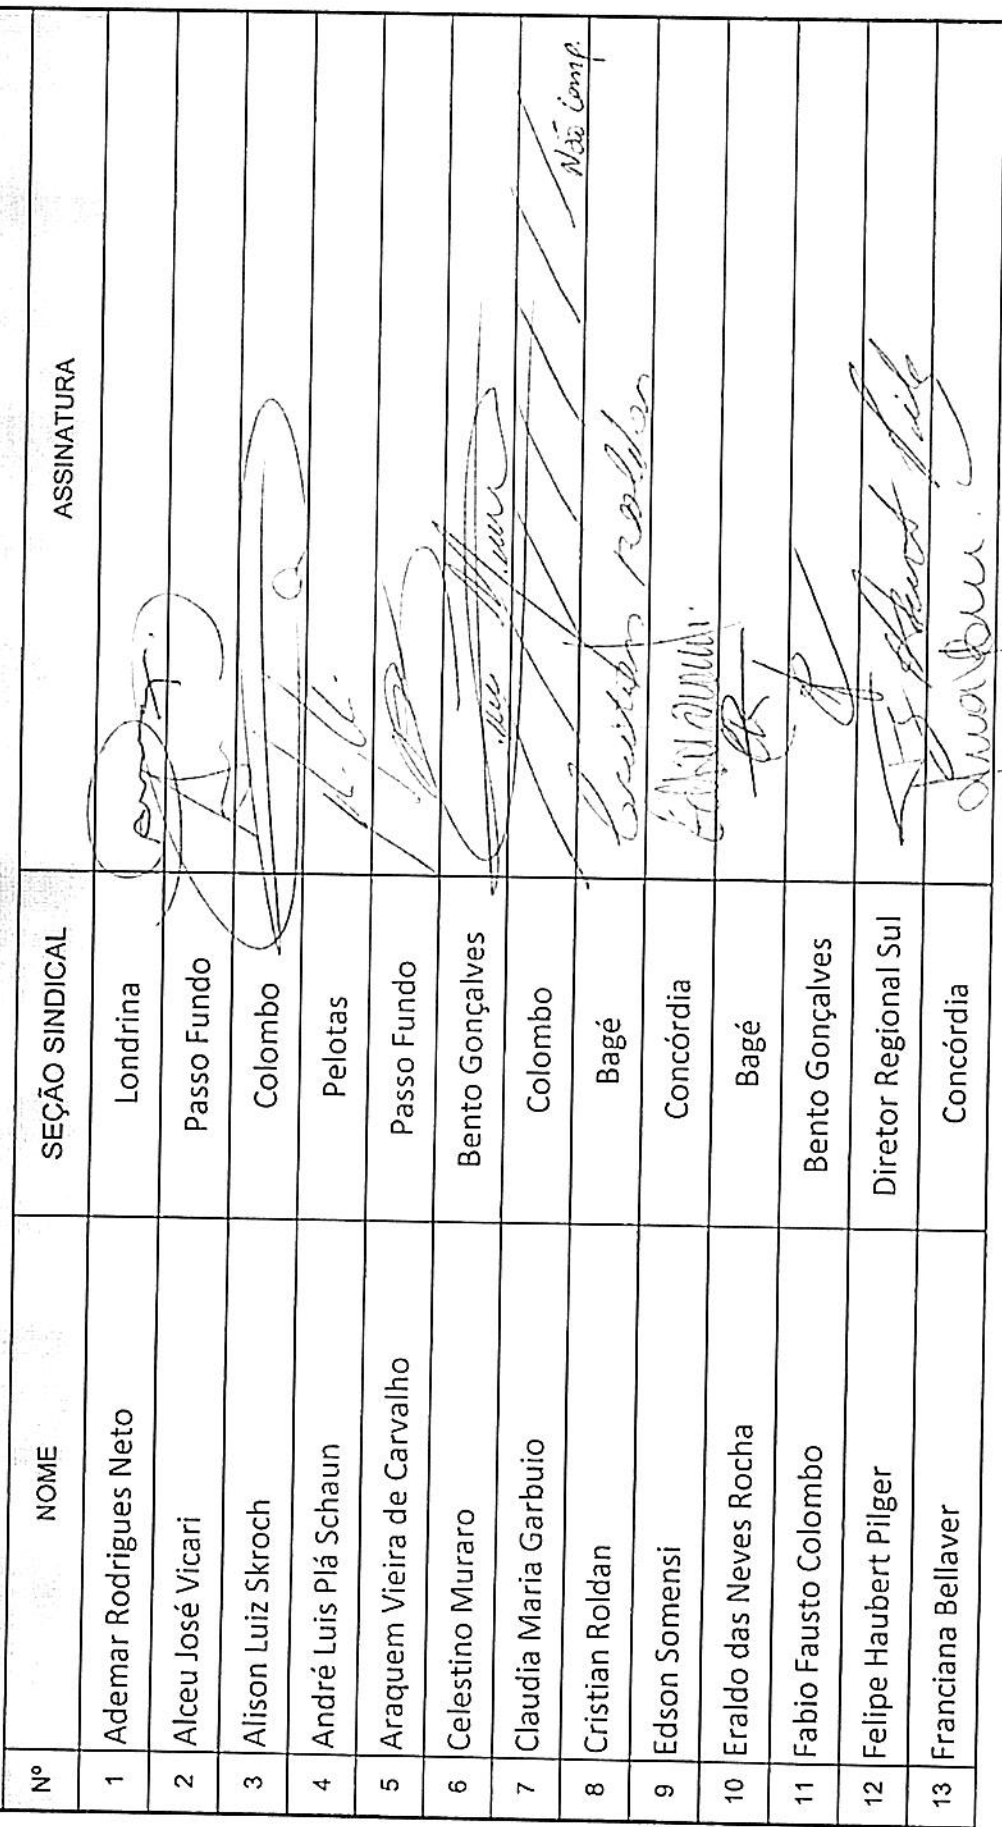 Nº NOME SEÇÃO SINDICAL ASSINATURA
1 Ademar Rodrigues Neto Londrina
2 Alceu José Vicari Passo Fundo
3 Alison Luiz Skroch Colombo
4 André Luis Plá Schaun Pelotas
5 Araquem Vieira de Carvalho Passo Fundo
6 Celestino Muraro Bento Gonçalves
7 Claudia Maria Garbuio Colombo Não comp.
8 Cristian Roldan Bagé Cristian Roldan
9 Edson Somensi Concórdia
10 Eraldo das Neves Rocha Bagé
11 Fabio Fausto Colombo Bento Gonçalves
12 Felipe Haubert Pilger Diretor Regional Sul
13 Franciana Bellaver Concórdia